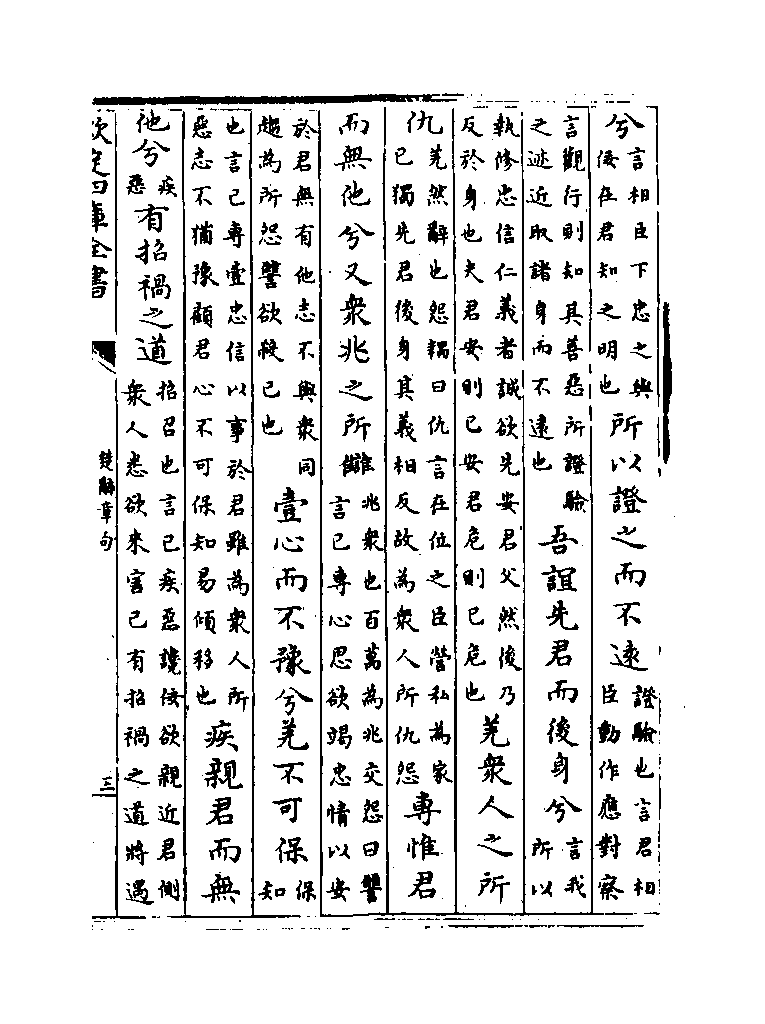 兮言相臣下忠之與佞在君知之明也所以證之而不遠證驗也言君相臣動作應對察
言觀行則知其善惡所證驗之迹近取諸身而不遠也吾誼先君而後身兮言我所以
執修忠信仁義者誠欲先安君父然後乃反於身也夫君安則已安君危則已危也羌衆人之所
仇羌然辭也怨耦曰仇言在位之臣營私為家已獨先君後身其義相反故為衆人所仇怨專惟君
而無他兮又衆兆之所讎兆衆也百萬為兆交怨曰讐言已專心思欲竭忠情以安
於君無有他志不與衆同趨為所怨讐欲殺已也壹心而不豫兮羌不可保保知
也言已專壹忠信以事於君雖為衆人所惡志不猶豫顧君心不可保知易傾移也疾親君而無
他兮疾惡有招禍之道招召也言已疾惡讒佞欲親近君側衆人悉欲來害已有招禍之道將遇
欽定四庫全書
楚辭章句
三